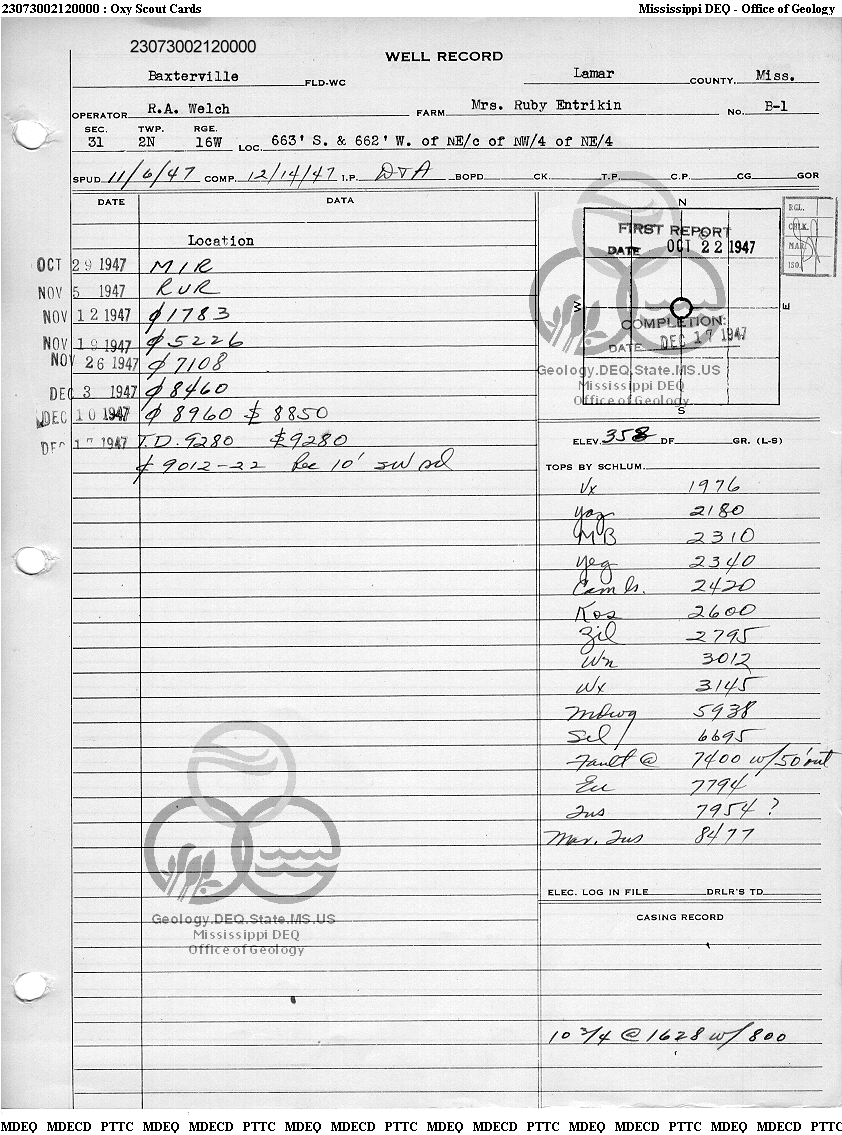 23073002120000 : Oxy Scout Cards Mississippi DEQ - Office of Geology
23073002120000
WELL RECORD
Baxterville FLD-WC Lamar COUNTY, Miss.
OPERATOR R.A. Welch FARM Mrs. Ruby Entrikin No. B-1
SEC. TWP. RGE.
31 2N 16W LOC. 663' S. & 662' W. of NE/c of NW/4 of NE/4
SPUD 11/6/47 COMP. 12/14/47 I.P. D&A BOPD CK. T.P. C.P. CG GOR
DATE DATA
Location
OCT 29 1947 MIR
NOV 5 1947 RUR
NOV 12 1947 ϕ1783
NOV 19 1947 ϕ5226
NOV 26 1947 ϕ7108
DEC 3 1947 ϕ8460
DEC 10 1947 ϕ 8960 8850
DEC 17 1947 T.D. 9280 9280
9012-22 Rec 10' SW sd
N
W
E
S
RGL.
CHLK.
MAR.
ISO.
FIRST REPORT
DATE OCT 22 1947
COMPLETION:
DATE DEC 17 1947
Geology.DEQ.State.MS.US
Mississippi DEQ
Office of Geology
ELEV. 358 DF GR. (L-S)
TOPS BY SCHLUM.
Vx 1976
Yaz 2180
MB 2310
Yeg 2340
Cam 2420
Kos 2600
Zil 2795
Wn 3012
Wx 3145
Mdwg 5938
Sel 6695
Fault @ 7400 w/50' out
Eu 7794
Tus 7954 ?
Mar. Tus 8477
ELEC. LOG IN FILE DRLR'S TD
CASING RECORD
10 3/4 @ 1628 w/ 800
Geology.DEQ.State.MS.US
Mississippi DEQ
Office of Geology
MDEQ MDECD PTTC MDEQ MDECD PTTC MDEQ MDECD PTTC MDEQ MDECD PTTC MDEQ MDECD PTTC MDEQ MDECD PTTC